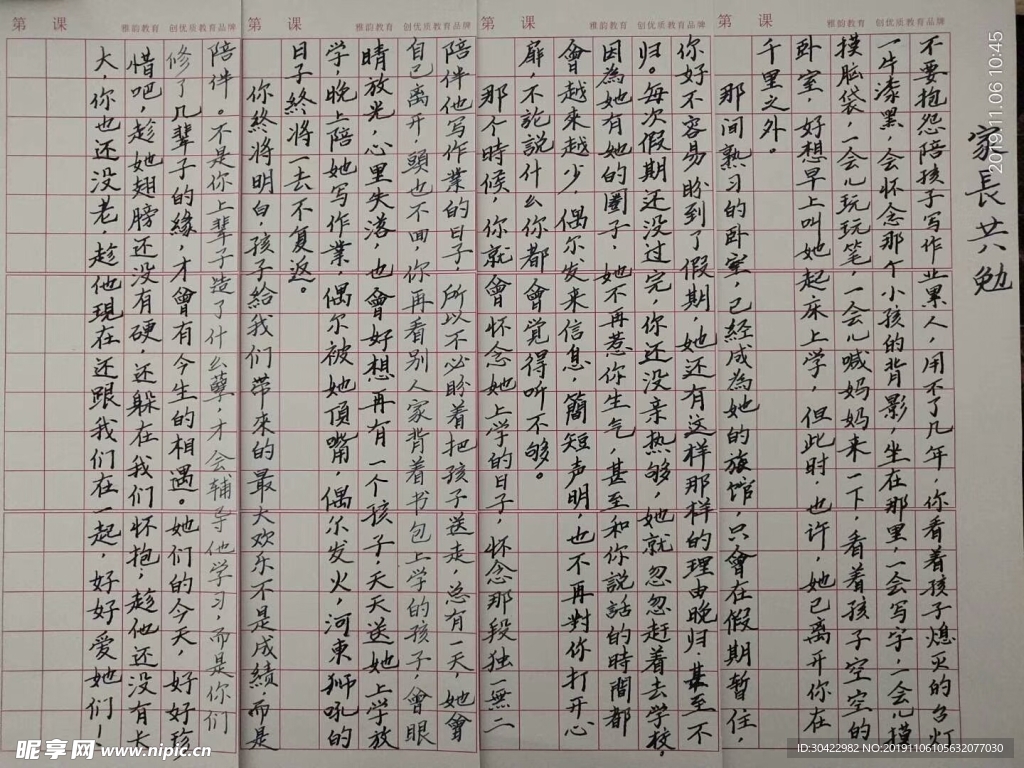 家長共勉
不要抱怨陪孩子写作业累人，用不了几年，你看着孩子熄灭的台灯
一片漆黑，会怀念那个小孩的背影，坐在那里，一会写字，一会儿摸
摸脑袋，一会儿玩玩笔，一会儿喊妈妈来一下，看着孩子空空的
卧室，好想早上叫她起床上学，但此时，也许，她已离开你在
千里之外。
那间熟习的卧室，已经成為她的旅馆，只會在假期暂住，
你好不容易盼到了假期，她还有这样那样的理由晚归，甚至不
归。每次假期还没过完，你还没亲热够，她就忽忽赶着去学校，
因為她有她的圈子，她不再惹你生气，甚至和你説話的時間都
會越来越少，偶尔发来信息，簡短声明，也不再對你打开心
扉，不論説什么你都會覚得听不够。
那个時候，你就會怀念她上学的日子，怀念那段独一無二
陪伴他写作業的日子，所以不必盼着把孩子送走，总有一天，她會
自己离开，頭也不回，你再看别人家背着书包上学的孩子，會眼
睛放光，心里失落，也會好想再有一个孩子，天天送她上学放
学，晚上陪她写作業，偶尔被她頂嘴，偶尔发火，河東狮吼的
日子終將一去不复返。
你終将明白，孩子給我们带来的最大欢乐不是成績，而是
陪伴。不是你上辈子造了什么孽，才会辅导他学习，而是你们
修了几辈子的緣，才會有今生的相遇。她们的今天，好好珍
惜吧，趁她翅膀还没有硬，还躲在我们怀抱，趁他还没有长
大，你也还没老，趁他現在还跟我们在一起，好好爱她们！
第 课 雅韵教育 创优质教育品牌
第 课 雅韵教育 创优质教育品牌
第 课 雅韵教育 创优质教育品牌
第 课 雅韵教育 创优质教育品牌
2019.11.06 10:45
昵享网 www.nipic.cn
ID:30422982 NO:20191106105632077030